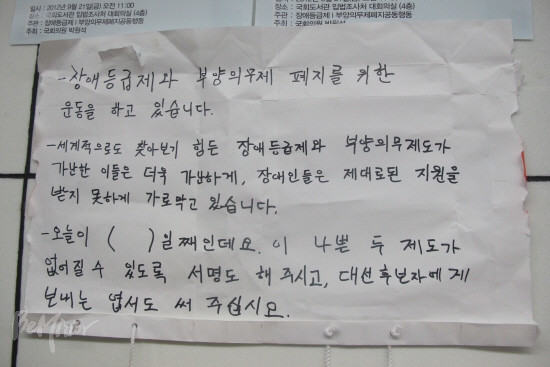 일시: 2012년 9월 21일(금) 오전 11:00
장소: 국회도서관 입법조사처 대회의실 (4층)
주관: 장애등급제 | 부양의무제폐지공동행동
주최: 국회의원 박원석
장소: 국회도서관 입법조사처 대회의실 (4층)
주관: 장애등급제 | 부양의무제폐지공동행동
주최: 국회의원 박원석
- 장애등급제와 부양의무제 폐지를 위한
운동을 하고 있습니다.
- 세계적으로도 찾아보기 힘든 장애등급제와 부양의무제도가
가난한 이들은 더욱 가난하게, 장애인들은 제대로된 지원을
받지 못하게 가로막고 있습니다.
- 오늘이 ( )일째인데요. 이 나쁜 두 제도가
없어질 수 있도록 서명도 해 주시고, 대선후보자에게
보내는 엽서도 써 주십시오.
BeMinor